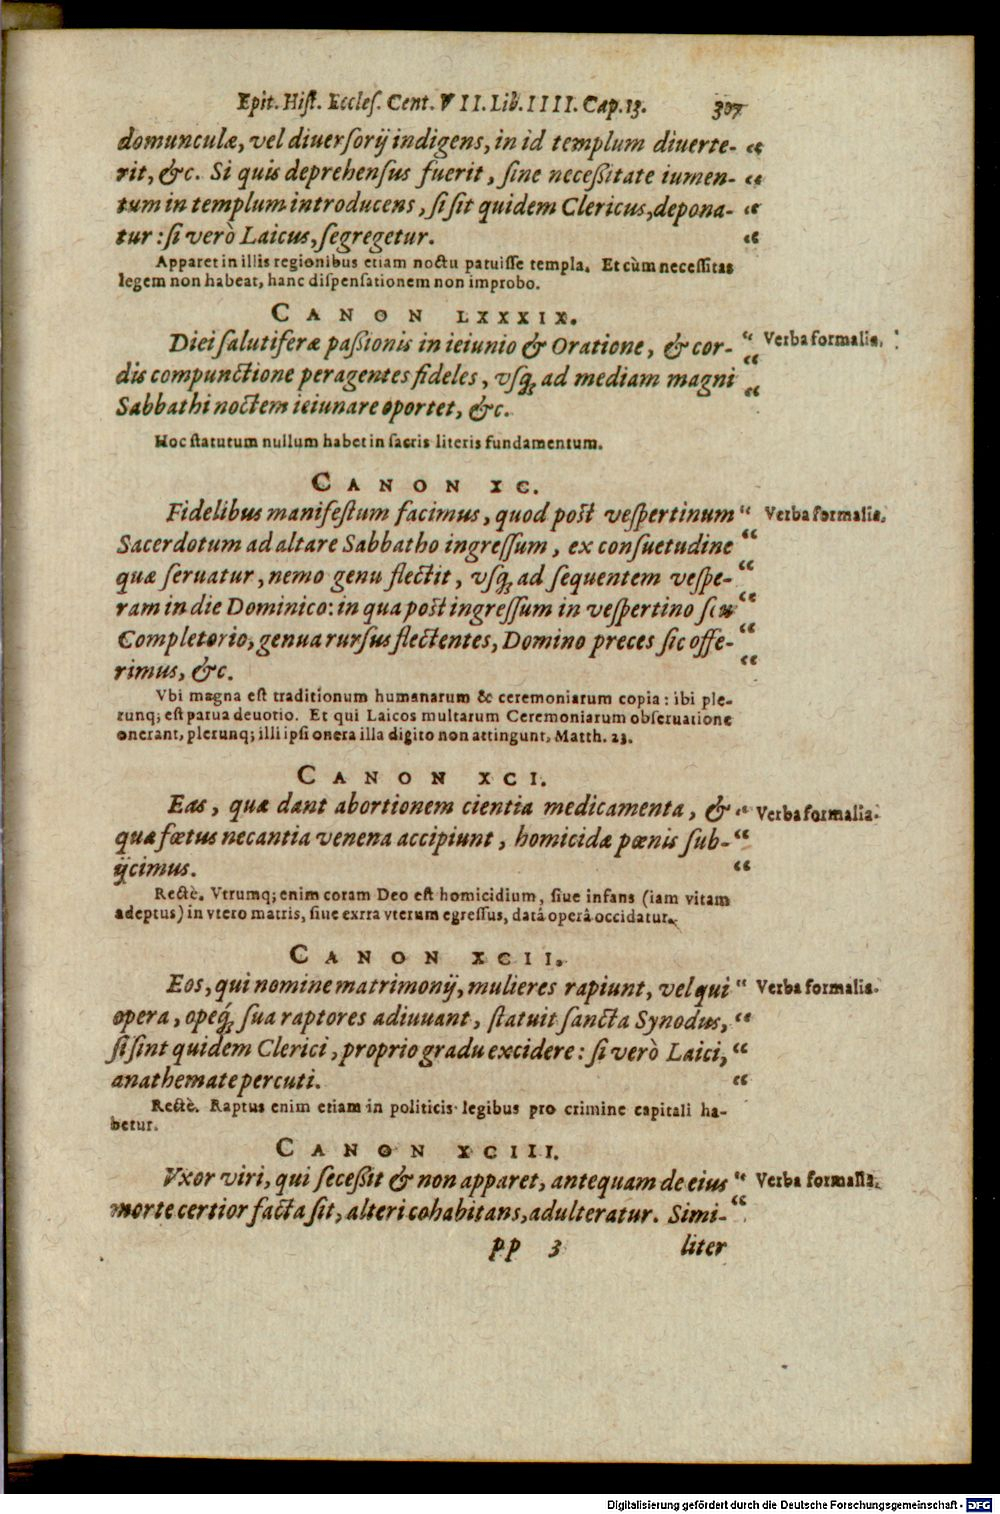 Epit. Hiſt. Eccleſ. Cent. VII. Lib. IIII. Cap. 13. 307
domunculæ, vel diuerſorij indigens, in id templum diuerte- “
rit, &c. Si quis deprehenſus fuerit, ſine neceſſitate iumen- “
tum in templum introducens, ſi ſit quidem Clericus, depona- “
tur: ſi verò Laicus, ſegregetur. “
Apparet in illis regionibus etiam noctu patuiſſe templa. Et cùm neceſſitas
legem non habeat, hanc diſpenſationem non improbo.
CANON LXXXIX.
Diei ſalutiferæ paſſionis in ieiunio & Oratione, & cor- “ Verba formalia.
dis compunctione peragentes fideles, vſq́; ad mediam magni “
Sabbathi noctem ieiunare oportet, &c. “
Hoc ſtatutum nullum habet in ſacris literis fundamentum.
CANON XC.
Fidelibus manifeſtum facimus, quod poſt veſpertinum “ Verba formalia.
Sacerdotum ad altare Sabbatho ingreſſum, ex conſuetudine “
quæ ſeruatur, nemo genu flectit, vſq́; ad ſequentem veſpe- “
ram in die Dominico: in qua poſt ingreſſum in veſpertino ſiue “
Completorio, genua rurſus flectentes, Domino preces ſic offe- “
rimus, &c. “
Vbi magna eſt traditionum humanarum & ceremoniarum copia: ibi ple-
runq; eſt parua deuotio. Et qui Laicos multarum Ceremoniarum obſeruatione
onerant, plerunq; illi ipſi onera illa digito non attingunt, Matth. 23.
CANON XCI.
Eas, quæ dant abortionem cientia medicamenta, & “ Verba formalia.
quæ fœtus necantia venena accipiunt, homicidæ pœnis ſub- “
ijcimus. “
Rectè. Vtrumq; enim coram Deo eſt homicidium, ſiue infans (iam vitam
adeptus) in vtero matris, ſiue exrra vterum egreſſus, datâ operâ occidatur.
CANON XCII.
Eos, qui nomine matrimonij, mulieres rapiunt, vel qui “ Verba formalia.
opera, opeq́; ſua raptores adiuuant, ſtatuit ſancta Synodus, “
ſi ſint quidem Clerici, proprio gradu excidere: ſi verò Laici, “
anathemate percuti. “
Rectè. Raptus enim etiam in politicis legibus pro crimine capitali ha-
betur.
CANON XCIII.
Vxor viri, qui ſeceſſit & non apparet, antequam de eius “ Verba formalia.
morte certior facta ſit, alteri cohabitans, adulteratur. Simi- “
pp 3 liter
Digitalisierung gefördert durch die Deutsche Forschungsgemeinschaft - DFG